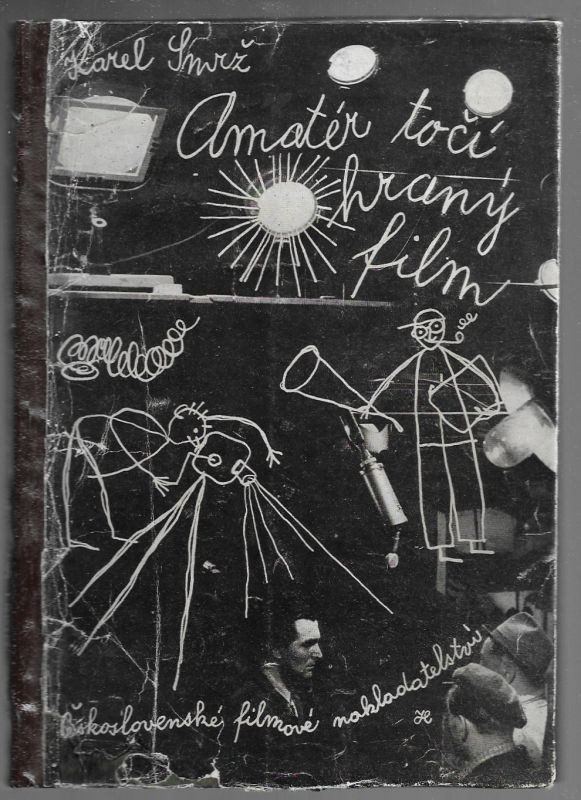 Karel Smrž
Amatér točí
hraný
film
Československé filmové nakladatelství